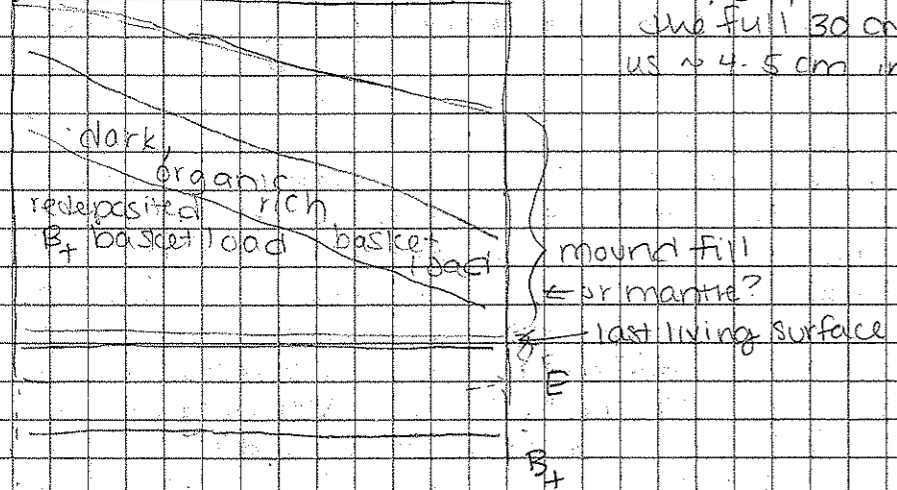 the full 30 cm
us ~ 4.5 cm in
dark,
organic
rich
basket
load
redeposited
Bt basket load
mound fill
← or mantle?
last living surface
E
Bt